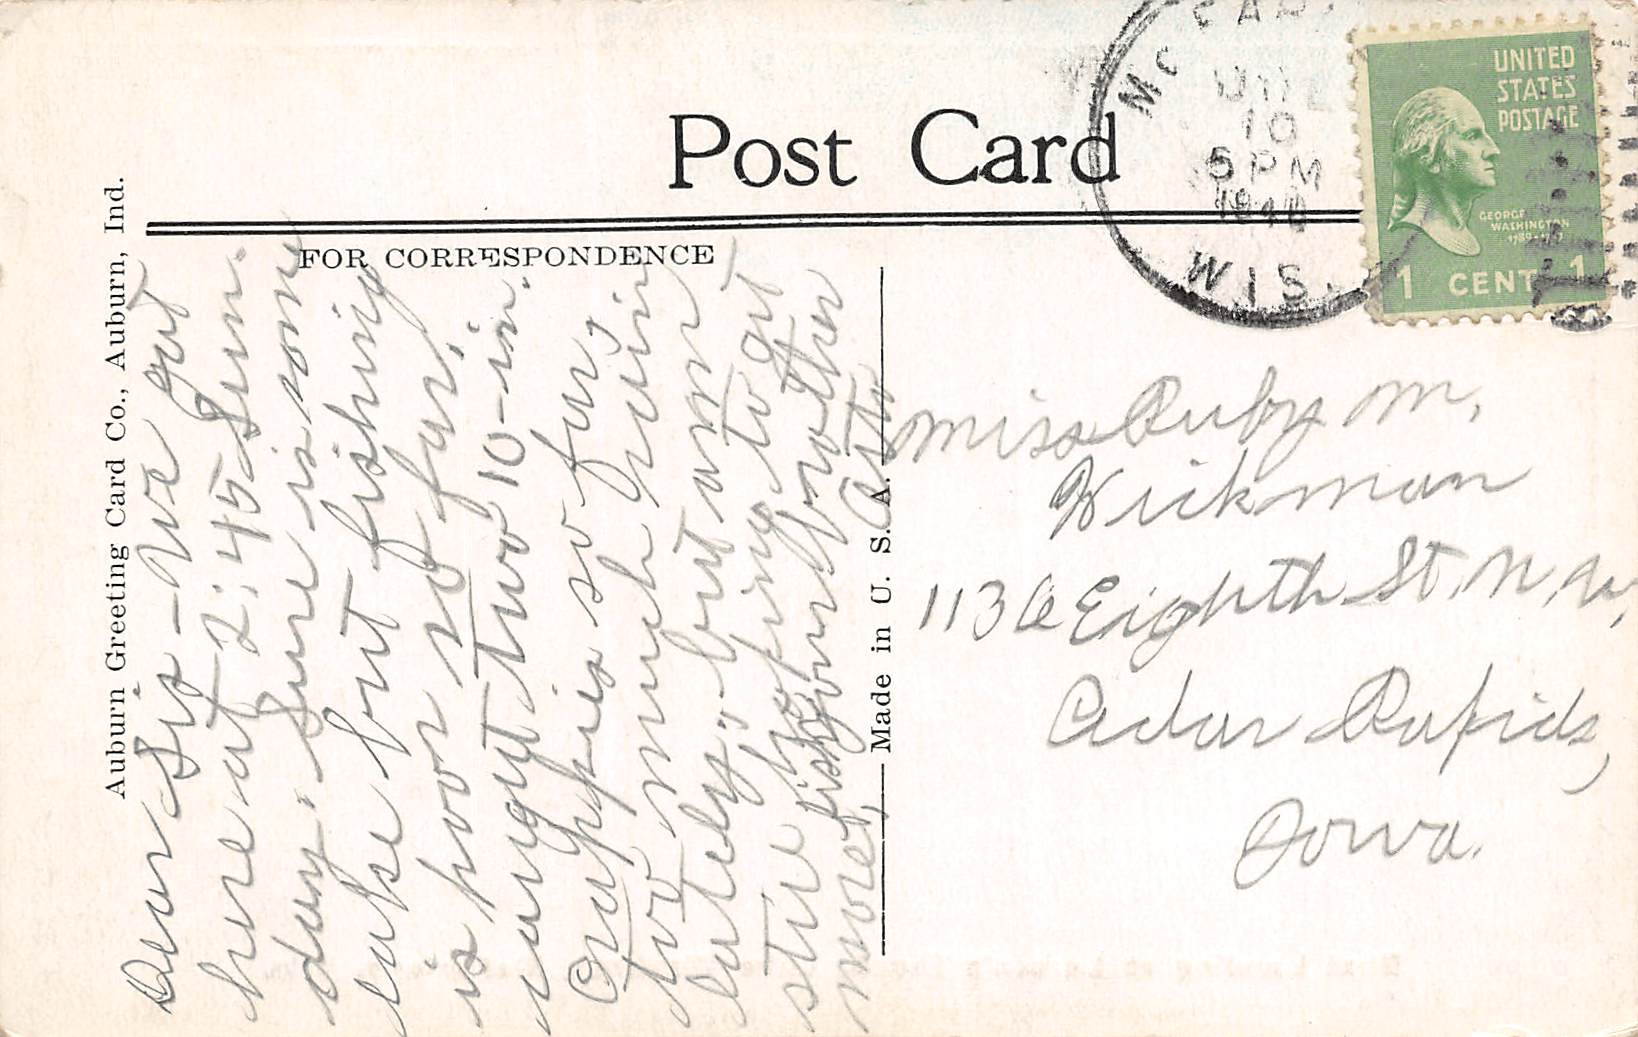 Post Card
FOR CORRESPONDENCE
Auburn Greeting Card Co., Auburn, Ind.
Made in U. S. A.
UNITED
STATES
POSTAGE
GEORGE
WASHINGTON
1 CENT 1
10
5 PM
WIS.
Dear Sis - We got
here at 2:45 Sun.
day. Sure is some
lake but fishing
is poor so far.
caught two 10-in.
Crappies so far,
too much rain
lately, but am
still hoping to get
more fish
Your brother
Miss Ruby M.
Wickman
1136 Eighth St. N.W.
Cedar Rapids,
Iowa.